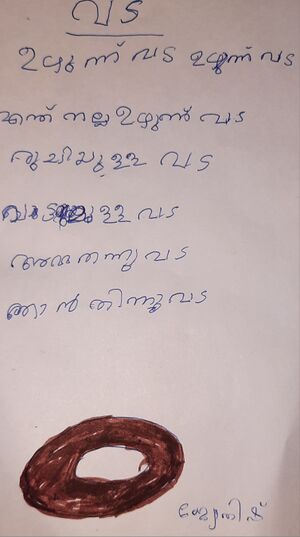 വട
ഉഴുന്ന് വട ഉഴുന്ന് വട
എന്ത് നല്ല ഉഴുന്ന് വട
രുചിയുള്ള വട
ചൂടുള്ള വട
അമ്മ തന്നു വട
ഞാൻ തിന്നു വട
ജ്യോതിഷ്